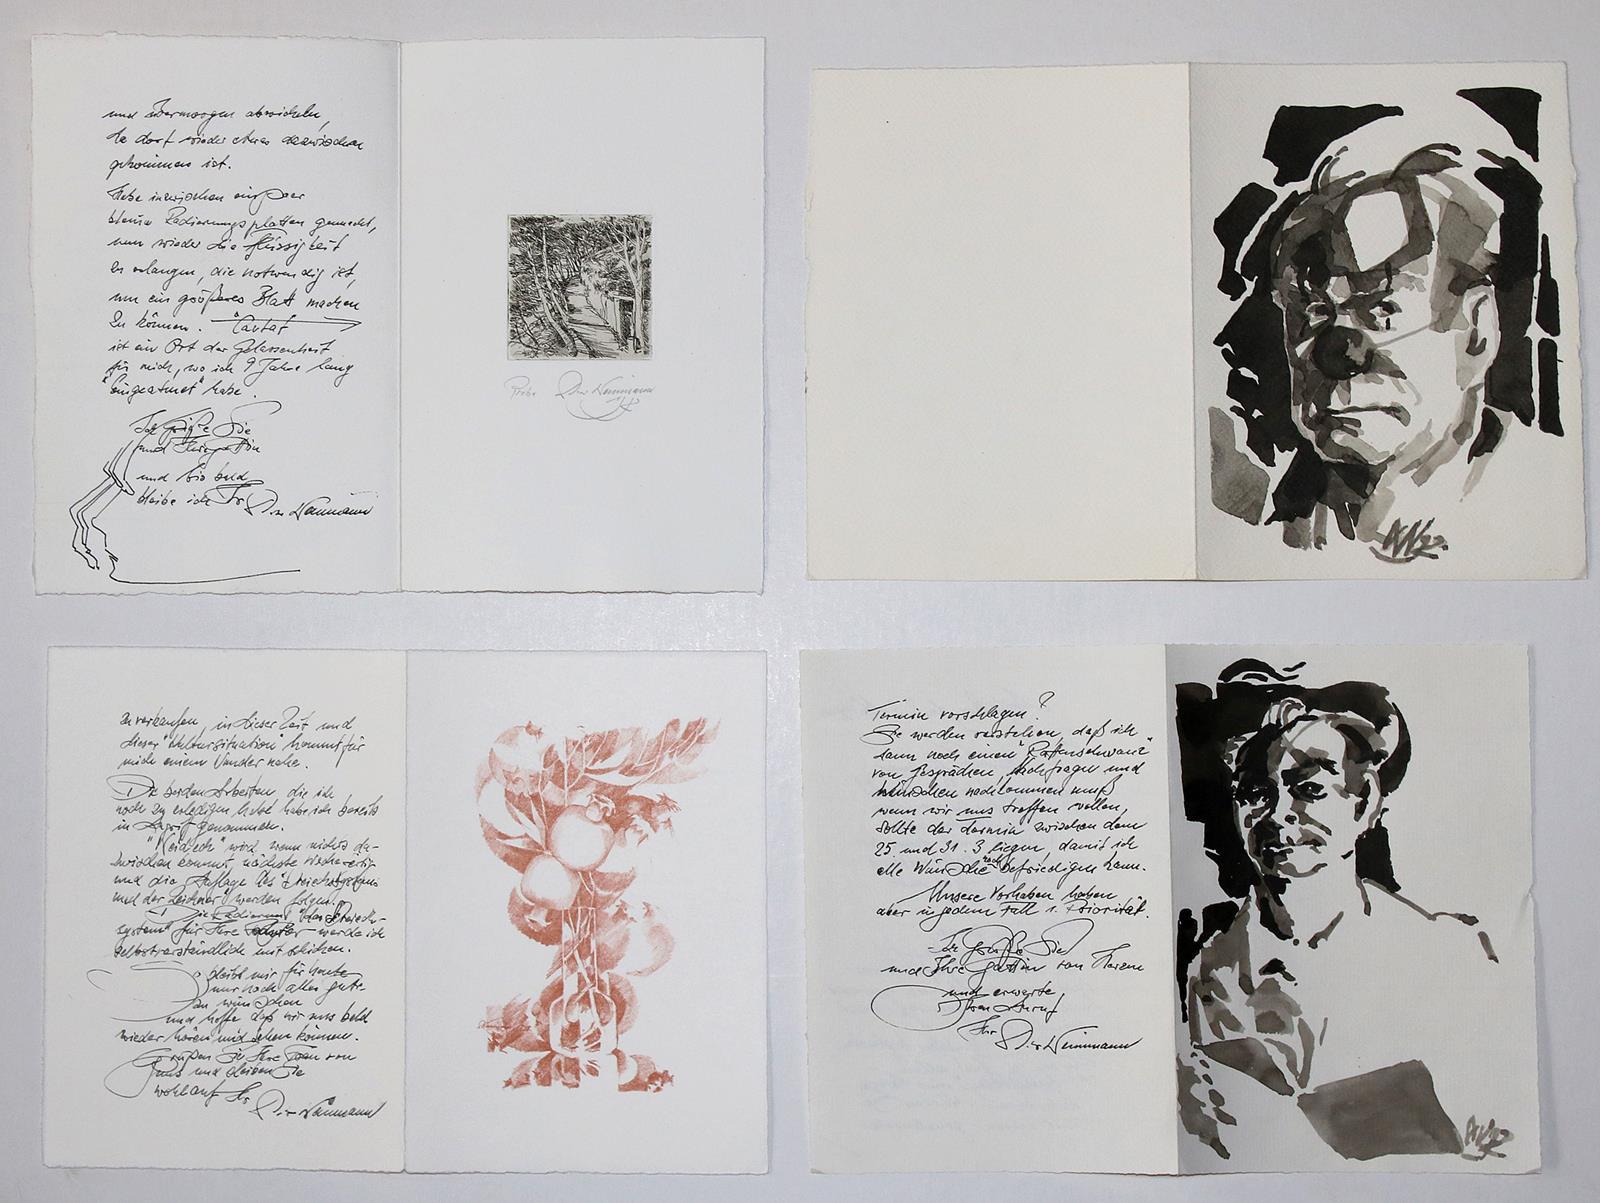 und übermorgen abwickeln,
da dort wieder etwas dazwischen
gekommen ist.
Habe inzwischen ein paar
kleine Radierungsplatten gemacht,
um wieder die Flüssigkeit
zu erlangen, die notwendig ist,
um ein größeres Blatt machen
zu können.
ist ein Ort der Gelassenheit
für mich, wo ich 9 Jahre lang
"eingeatmet" habe.
Ich grüße Sie
und Ihre Gattin
und bis bald
bleibe ich Ihr
Probe
zu verkaufen, in dieser Zeit und
dieser "Kultursituation" kommt für
mich einem Wunder nahe.
Die beiden Arbeiten die ich
noch zu erledigen habe habe ich bereits
in Angriff genommen.
wird wenn nichts da-
zwischen kommt, nächste Woche
und die Auflage des
und der Zeichner" werden folgen.
Die Radierung "das
system" für Ihre werde ich
selbstverständlich mitschicken.
bleibt mir für heute
nur noch alles gute
zu wünschen
und hoffe daß wir uns bald
wieder hören und sehen können.
Grüßen Sie Ihre Frau von
uns und bleiben Sie
wohlauf Ihr
Termin vorschlagen?
Sie werden verstehen, daß ich
dann noch einen "Rattenschwanz"
von Gesprächen, Nachfragen und
Wünschen nachkommen muß
wenn wir uns treffen wollen,
sollte der Termin zwischen dem
25. und 31. 3 liegen, damit ich
alle Wünsche noch befriedigen kann.
Unsere Vorhaben haben
aber in jedem Fall 1. Priorität.
Ich grüße Sie
und Ihre Gattin von Herzen
und erwarte
Ihren Anruf
Ihr